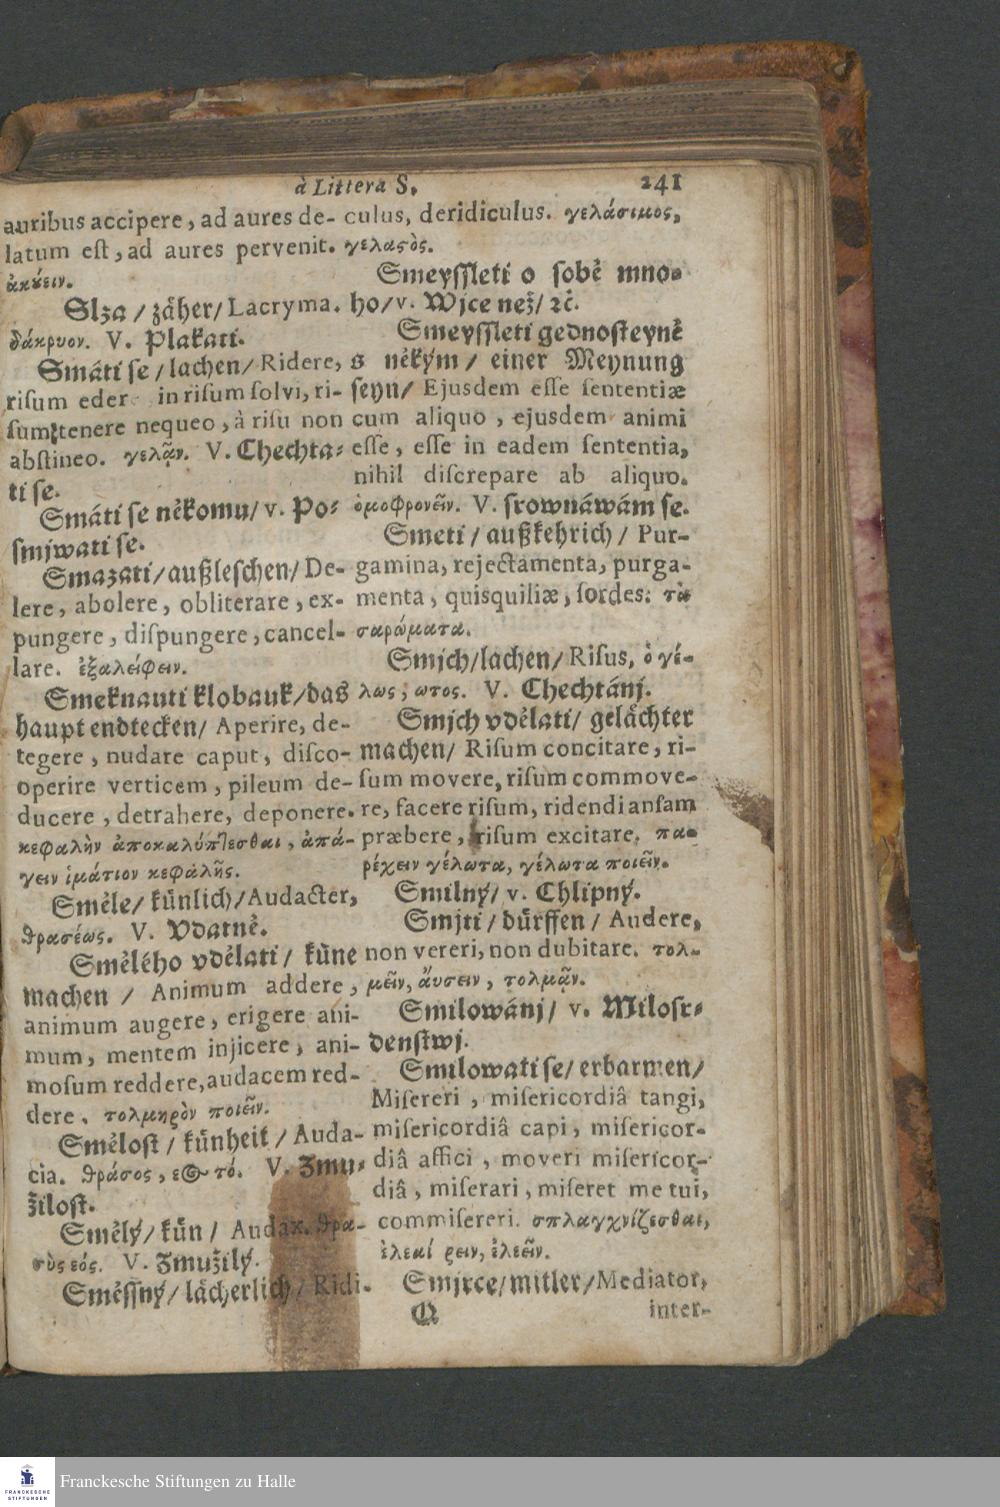 à Littera S.
241
auribus accipere, ad aures de-
latum est, ad aures pervenit.
ἀκȣ́ειν.
Slza / zäher / Lacryma.
δάκρυον. V. Plakati.
Smáti se / lachen / Ridere,
risum edere in risum solvi, ri-
sum tenere nequeo, à risu non
abstineo. γελᾷν. V. Chechta-
ti se.
Smáti se někomu / v. Po-
smjwati se.
Smazati / außleschen / De-
lere, abolere, obliterare, ex-
pungere, dispungere, cancel-
lare. ἐξαλείφειν.
Smeknauti klobauk / das
haupt endtecken / Aperire, de-
tegere, nudare caput, disco-
operire verticem, pileum de-
ducere, detrahere, deponere.
κεφαλὴν ἀποκαλύπτεσθαι, ἀπά-
γειν ἱμάτιον κεφαλῆς.
Směle / künlich / Audacter,
θρασέως. V. Vdatně.
Smělého vdělati / küne
machen / Animum addere,
animum augere, erigere ani-
mum, mentem injicere, ani-
mosum reddere, audacem red-
dere. τολμηρὸν ποιεῖν.
Smělost / künheit / Auda-
cia. θράσος, εος τό. V. Zmu-
žilost.
Smělý / kün / Audax. θρα-
σὺς εός. V. Zmužilý.
Směssný / lächerlich / Ridi-
culus, deridiculus. γελάσιμος,
γελαςὸς.
Smeyssleti o sobě mno-
ho / v. Wjce než / ꝛc̓.
Smeyssleti gednosteyně
s někým / einer Meynung
seyn / Ejusdem esse sententiæ
cum aliquo, ejusdem animi
esse, esse in eadem sententia,
nihil discrepare ab aliquo.
ὁμοφρονεῖν. V. srownáwám se.
Smeti / außkehrich / Pur-
gamina, rejectamenta, purga-
menta, quisquiliæ, sordes. τὰ
σαρώματα.
Smjch / lachen / Risus, ὁ γέ-
λως, ωτος. V. Chechtánj.
Smjch vdělati / gelächter
machen / Risum concitare, ri-
sum movere, risum commove-
re, facere risum, ridendi ansam
præbere, risum excitare. πα-
ρέχειν γέλωτα, γέλωτα ποιεῖν.
Smilný / v. Chlipný.
Smjti / dürffen / Audere,
non vereri, non dubitare. τολ-
μεῖν, ἄυσειν, τολμᾷν.
Smilowánj / v. Milosr-
denstwj.
Smilowati se / erbarmen /
Misereri, misericordiâ tangi,
misericordiâ capi, misericor-
diâ affici, moveri misericor-
diâ, miserari, miseret me tui,
commisereri. σπλαγχνίζεσθαι,
ἐλεαί ρειν, ἐλεεῖν.
Smjrce / mitler / Mediator,
Q
inter-
FRANCKESCHE STIFTUNGEN
Franckesche Stiftungen zu Halle